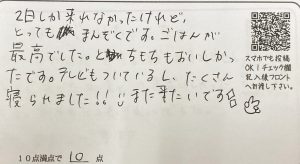 2日しか来れなかったけれど、
とってもまんぞくです。ごはんが
最高でした。とちもちもおいしかっ
たです。テレビもついているし、たくさん
寝られました!!また来たいです
スマホでも投稿
OK!チェック欄
記入後フロント
へお渡し下さい。
10点満点で 10 点